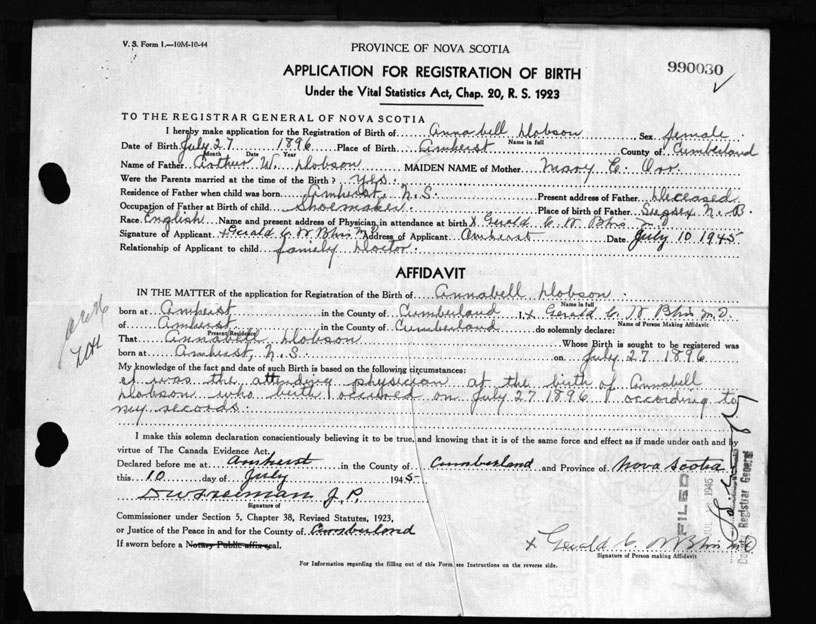 V. S. Form 1.—10M-10-44
PROVINCE OF NOVA SCOTIA
990030
APPLICATION FOR REGISTRATION OF BIRTH
Under the Vital Statistics Act, Chap. 20, R. S. 1923
TO THE REGISTRAR GENERAL OF NOVA SCOTIA
I hereby make application for the Registration of Birth of Annabell Dobson Sex female
Name in full
Date of Birth July 27 1896 Place of Birth Amherst County of Cumberland
Month Date Year
Name of Father Arthur W. Dobson MAIDEN NAME of Mother Mary E. Orr
Were the Parents married at the time of the Birth? Yes.
Residence of Father when child was born Amherst, N.S. Present address of Father Deceased
Occupation of Father at Birth of child Shoemaker. Place of birth of Father Sussex N. B.
Race English Name and present address of Physician in attendance at birth x Gerald C. W.
Signature of Applicant x Gerald C. W. Address of Applicant Amherst Date July 10 1945
Relationship of Applicant to child family Doctor.
AFFIDAVIT
IN THE MATTER of the application for Registration of the Birth of Annabell Dobson
Name in full
born at Amherst in the County of Cumberland I, x Gerald C. W. M.D.
Name of Person Making Affidavit
of Amherst in the County of Cumberland do solemnly declare:
Present Residence
That Annabell Dobson Whose Birth is sought to be registered was
born at Amherst, N.S. on July 27 1896
My knowledge of the fact and date of such Birth is based on the following circumstances:
I was the attending physician at the birth of Annabell
Dobson who birth occured on July 27 1896 according to
my records.
I make this solemn declaration conscientiously believing it to be true, and knowing that it is of the same force and effect as if made under oath and by
virtue of The Canada Evidence Act.
Declared before me at Amherst in the County of Cumberland and Province of Nova Scotia
this 10 day of July 1945
J. P.
Signature of
Commissioner under Section 5, Chapter 38, Revised Statutes, 1923,
or Justice of the Peace in and for the County of Cumberland
If sworn before a Notary Public affix seal.
x Gerald C. W. M.D
Signature of Person making Affidavit
For Information regarding the filling out of this Form see Instructions on the reverse side.
FILED
1945
Registrar General